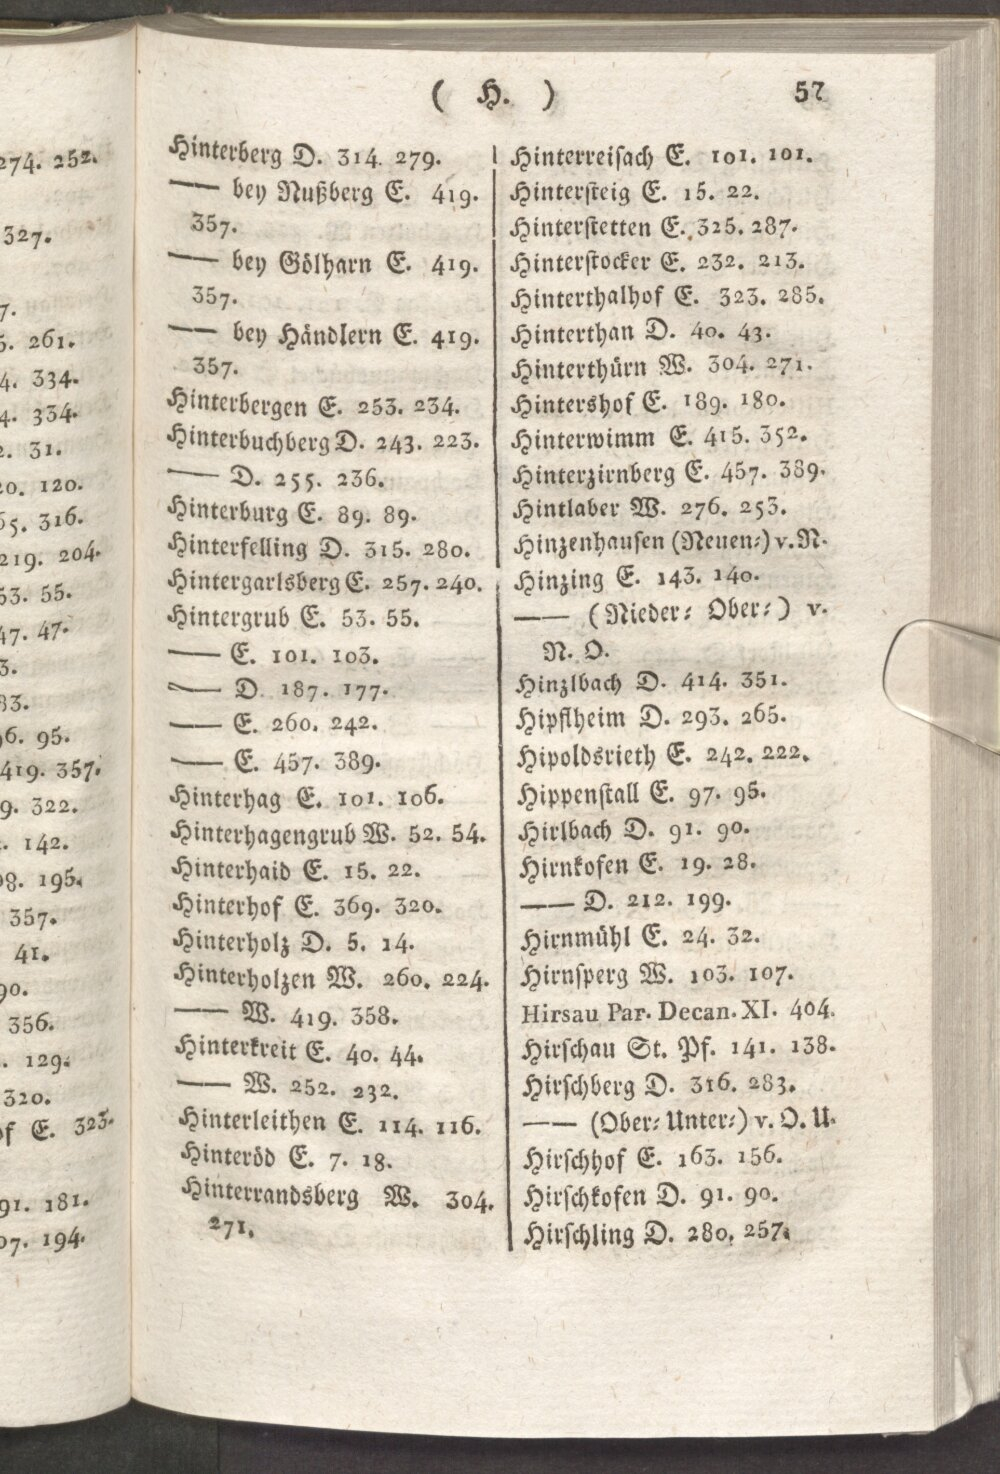 274. 252.
327.
7.
5. 261.
4. 334.
4. 334.
2. 31.
20. 120.
65. 316.
219. 204.
53. 55.
47. 47.
3.
83.
96. 95.
419. 357.
9. 322.
. 142.
98. 195.
357.
41.
90.
356.
. 129.
320.
of E. 323.
91. 181.
07. 194.
( H. ) 57
Hinterberg D. 314. 279.
—— bey Nußberg E. 419.
357.
—— bey Gölharn E. 419.
357.
—— bey Händlern E. 419.
357.
Hinterbergen E. 253. 234.
Hinterbuchberg D. 243. 223.
—— D. 255. 236.
Hinterburg E. 89. 89.
Hinterfelling D. 315. 280.
Hintergarlsberg E. 257. 240.
Hintergrub E. 53. 55.
—— E. 101. 103.
—— D. 187. 177.
—— E. 260. 242.
—— E. 457. 389.
Hinterhag E. 101. 106.
Hinterhagengrub W. 52. 54.
Hinterhaid E. 15. 22.
Hinterhof E. 369. 320.
Hinterholz D. 5. 14.
Hinterholzen W. 260. 224.
—— W. 419. 358.
Hinterkreit E. 40. 44.
—— W. 252. 232.
Hinterleithen E. 114. 116.
Hinteröd E. 7. 18.
Hinterrandsberg W. 304.
271.
Hinterreisach E. 101. 101.
Hintersteig E. 15. 22.
Hinterstetten E. 325. 287.
Hinterstocker E. 232. 213.
Hinterthalhof E. 323. 285.
Hinterthan D. 40. 43.
Hinterthürn W. 304. 271.
Hintershof E. 189. 180.
Hinterwimm E. 415. 352.
Hinterzirnberg E. 457. 389.
Hintlaber W. 276. 253.
Hinzenhausen (Neuen⸗) v. N.
Hinzing E. 143. 140.
—— (Nieder⸗ Ober⸗) v.
N. O.
Hinzlbach D. 414. 351.
Hipflheim D. 293. 265.
Hipoldsrieth E. 242. 222.
Hippenstall E. 97. 95.
Hirlbach D. 91. 90.
Hirnkofen E. 19. 28.
—— D. 212. 199.
Hirnmühl E. 24. 32.
Hirnsperg W. 103. 107.
Hirsau Par. Decan. XI. 404.
Hirschau St. Pf. 141. 138.
Hirschberg D. 316. 283.
—— (Ober⸗ Unter⸗) v. O. U.
Hirschhof E. 163. 156.
Hirschkofen D. 91. 90.
Hirschling D. 280. 257.